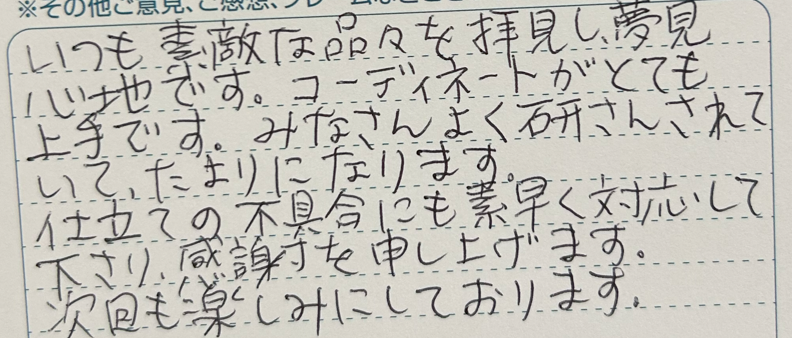 ※その他ご意見、ご感想、クレームなどござ
いつも素敵な品々を拝見し、夢見
心地です。コーディネートがとても
上手です。みなさんよく研さんされて
いて、たよりになります。
仕立ての不具合にも素早く対応して
下さり、感謝を申し上げます。
次回も楽しみにしております。